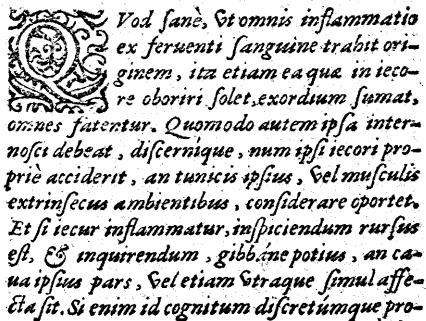 QVod sanè, vt omnis inflammatio
ex feruenti sanguine trahit ori-
ginem, ita etiam ea quæ in ieco-
re oboriri solet, exordium sumat,
omnes fatentur. Quomodo autem ipsa inter-
nosci debeat, discernique, num ipsi iecori pro-
priè acciderit, an tunicis ipsius, vel musculis
extrinsecus ambientibus, considerare oportet.
Et si iecur inflammatur, inspiciendum rursus
est, & inquirendum, gibbáne potius, an ca-
ua ipsius pars, vel etiam vtraque simul affe-
cta sit. Si enim id cognitum discretúmque pro-